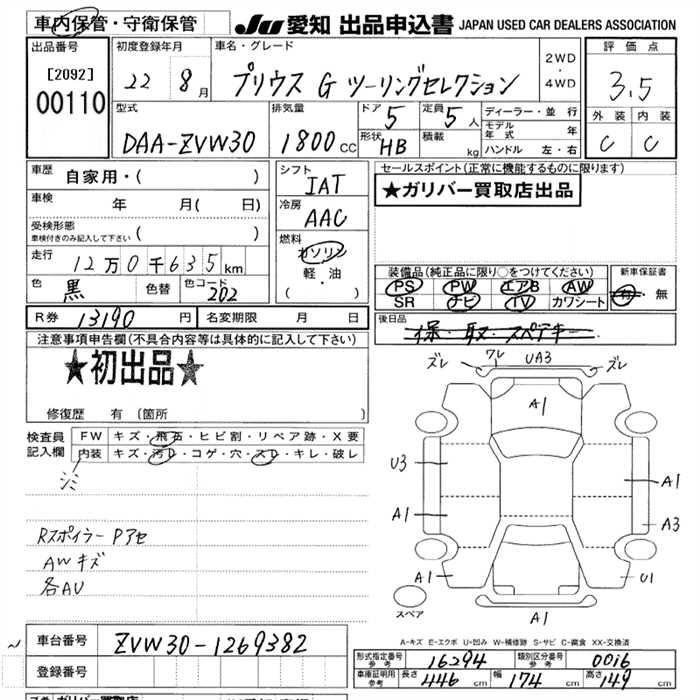 車内保管・守衛保管
JU 愛知 出品申込書 JAPAN USED CAR DEALERS ASSOCIATION
出品番号
[2092]
00110
初度登録年月
22 8 月
車名・グレード
プリウス G ツーリングセレクション
2WD
・
4WD
評価点
3.5
外装 内装
C C
型式
DAA-ZVW30
排気量
1800 CC
ドア
5
定員
5 人
形状
HB
積載
kg
ディーラー・並行
モデル年式 年
ハンドル 左・右
車歴 自家用・( )
車検 年 月( 日)
受検形態
車検付きのみ記入して下さい ( )
走行
12万0千635km
色
黒
色替
色コード
202
シフト
IAT
冷房
AAC
燃料
ガソリン
軽・油
( ・ )
セールスポイント(正常に機能するものに限ります)
★ガリバー買取店出品
装備品(純正品に限り○をつけてください)
PS PW エアB AW
SR ナビ TV カワシート
新車保証書
有・無
R券 13190 円 名変期限 月 日
後日品
保・取・スペアキー
注意事項申告欄(不具合内容等は具体的に記入して下さい)
★初出品★
修復歴 有 (箇所 )
検査員
記入欄
FW キズ・飛石・ヒビ割・リペア跡・X要
内装 キズ・汚レ・コゲ・穴・スレ・キレ・破レ
シミ
Rスポイラー Pアセ
AWキズ
各AU
ズレ ワレ UA3 ズレ
A1
U3
A1
A1
A1
A3
A1
U1
スペア
A1
A-キズ E-エクボ U-凹み W-補修跡 S-サビ C-腐食 XX-交換済
車台番号 ZVW30-1269382
登録番号
形式指定番号
参考 16294
類別区分番号
参考 0016
車庫証明用
参考 長さ 446 cm 幅 174 cm 高さ 149 cm